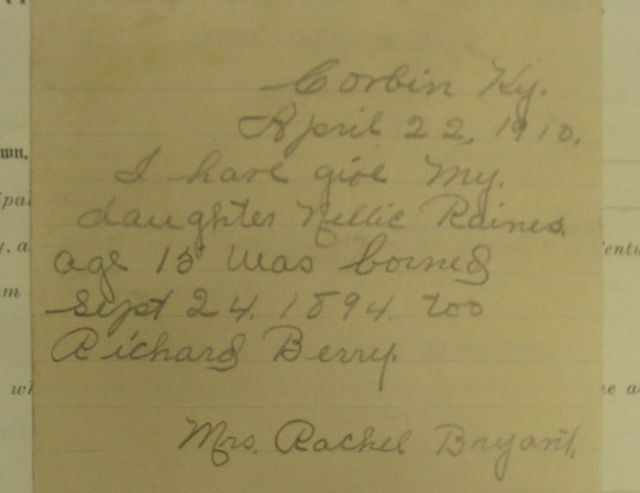 Corbin Ky.
April 22, 1910.
I have give My.
daughter Nellie Raines.
age 15 was borned
Sept 24. 1894. too
Richard Berry.
Mrs. Rachel Bryant.